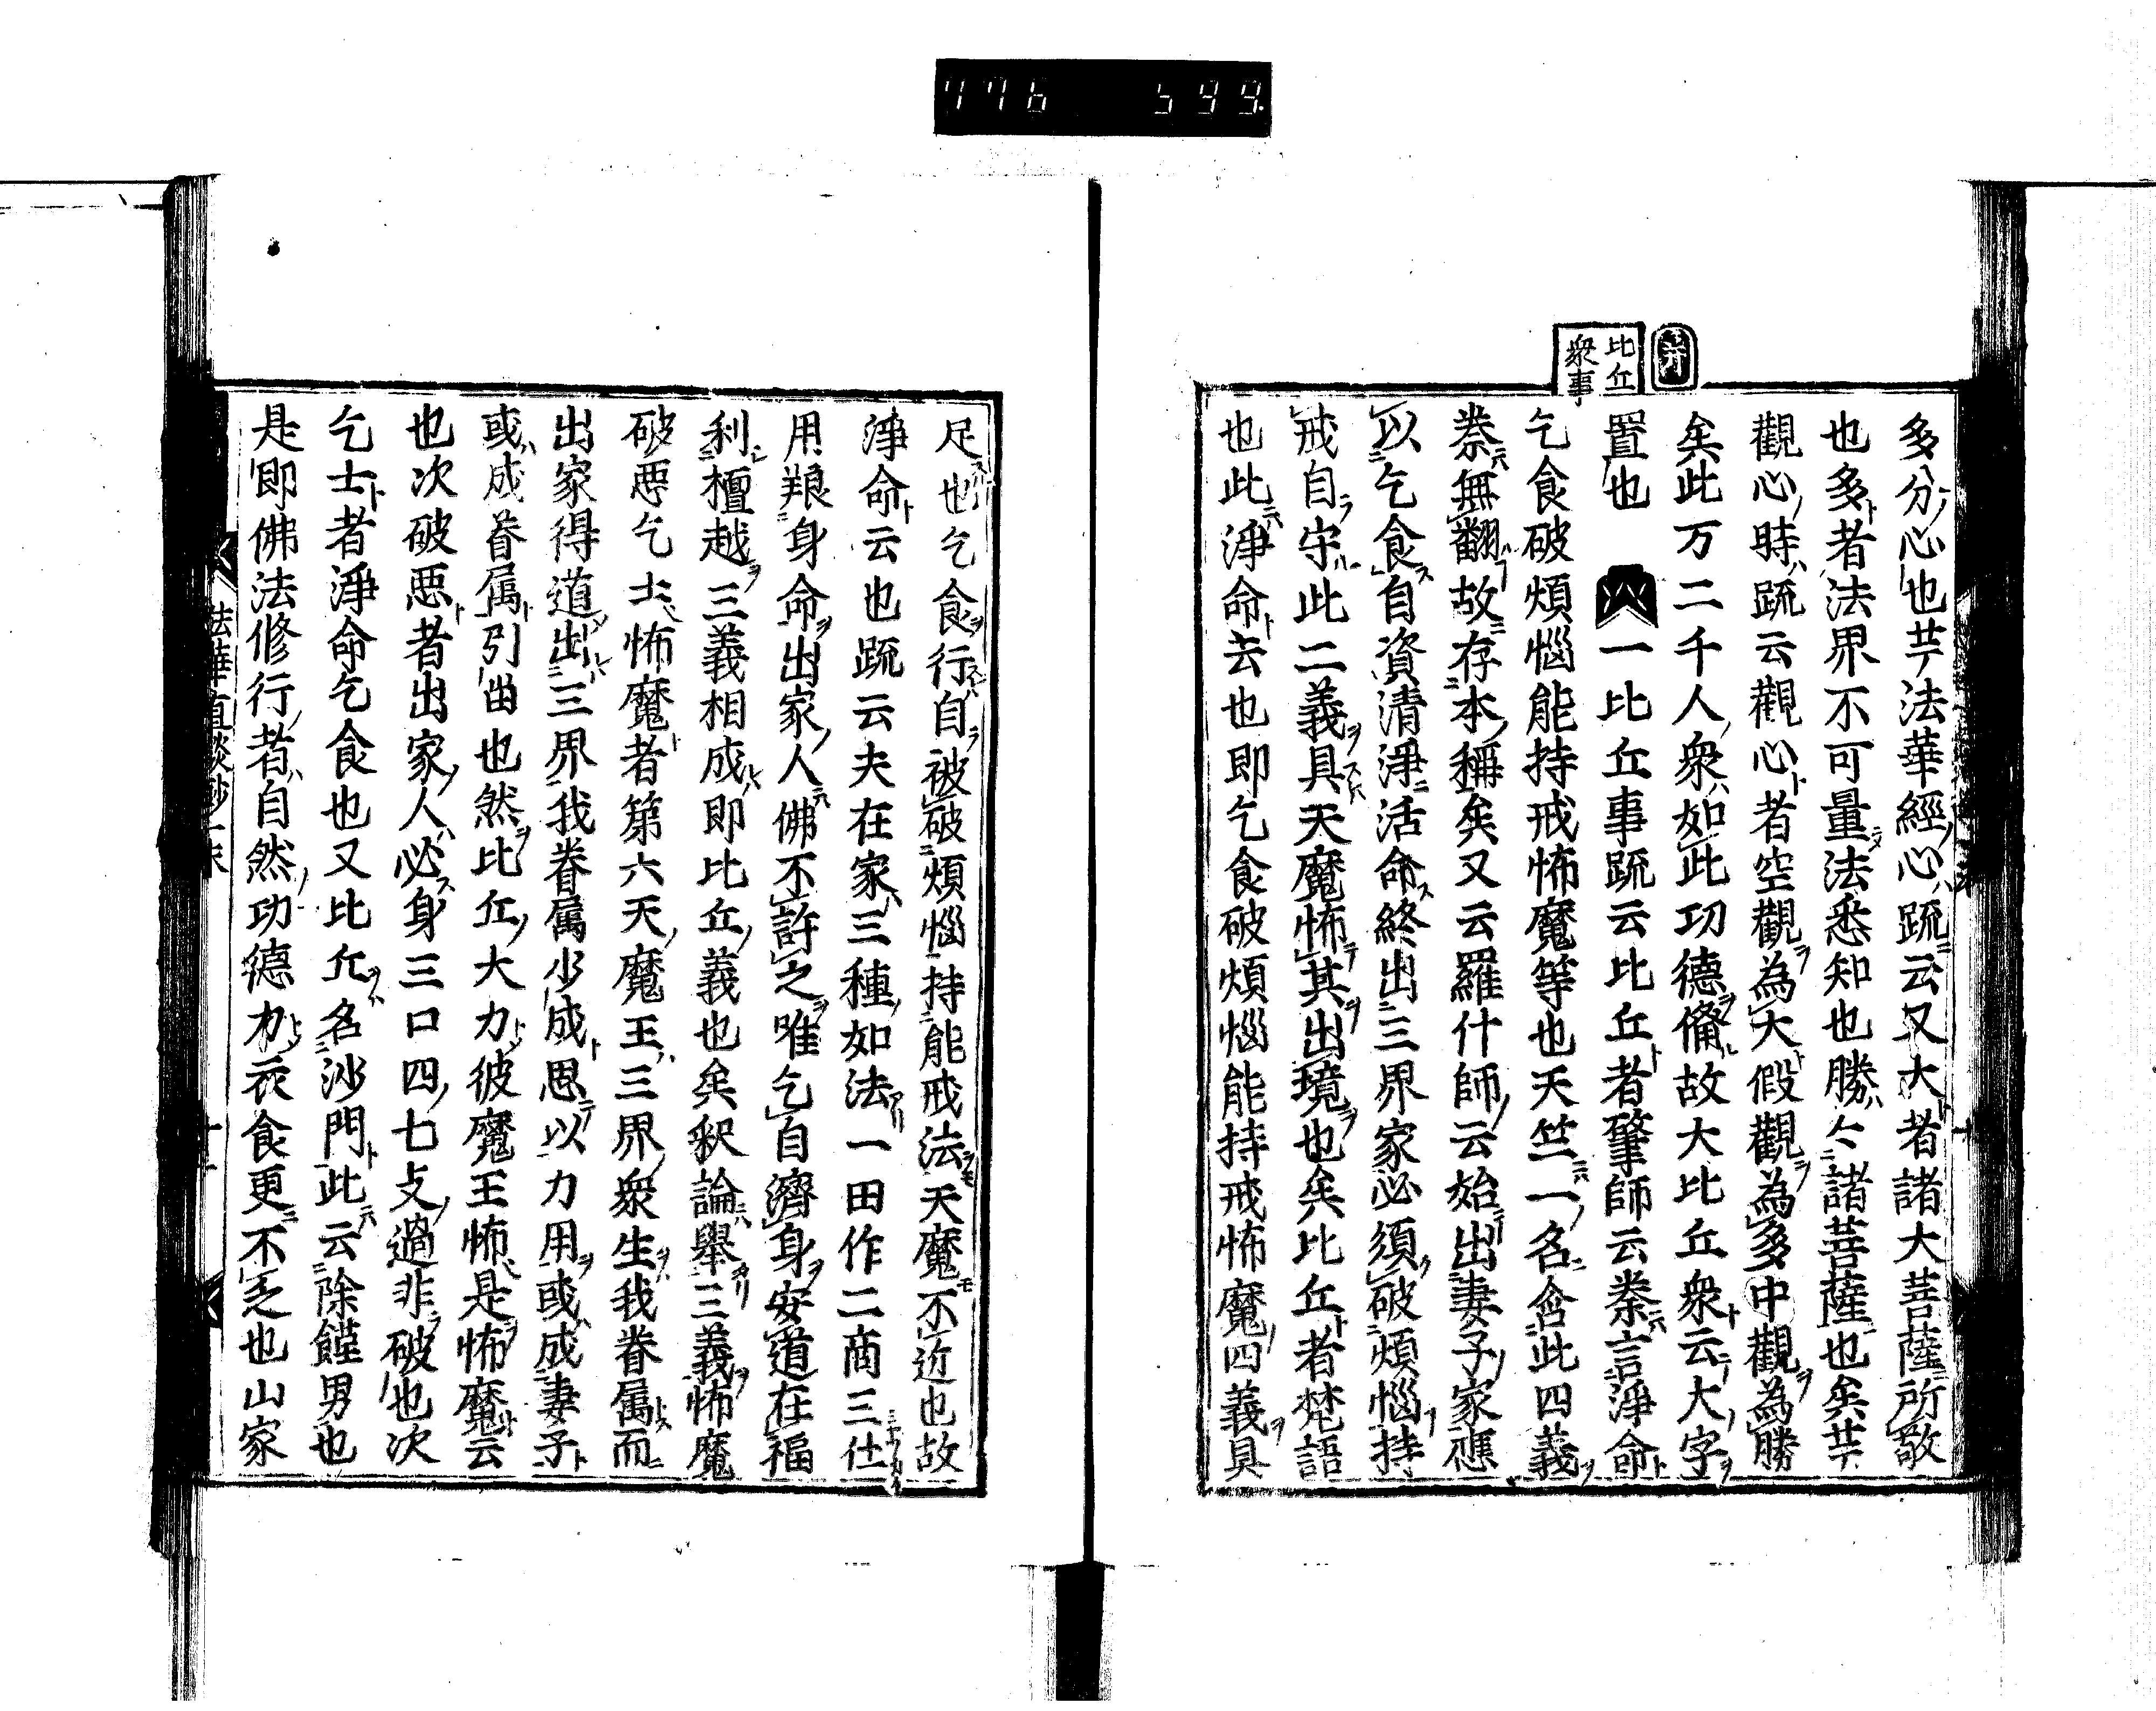 776 599.
卅
比丘
衆事
多分心也䒑法華經心疏云又大者諸大菩薩所敬
也多者法界不可量法悉知也勝〻諸菩薩也矣䒑
觀心時疏云觀心者空觀為大假觀為多中觀為勝
矣此万二千人衆如此功德備故大比丘衆云大字
置也 一比丘事疏云比丘者肇師云秦言淨命
乞食破煩惱能持戒怖魔等也天竺一名含此四義
秦無翻故存本稱矣又云羅什師云始出妻子家應
以乞食自資清淨活命終出三界家必須破煩惱持
戒自守此二義具天魔怖其出境也矣比丘者梵語
也此淨命云也即乞食破煩惱能持戒怖魔四義具
足也乞食行自被破煩惱持能戒法天魔不近也故
淨命云也疏云夫在家三種如法一田作二商三仕
用粮身命出家人佛不許之唯乞自濟身安道在福
利檀越三義相成即比丘義也矣釈論舉三義怖魔
破悪乞士怖魔者第六天魔王三界衆生我眷属而
出家得道出三界我眷属少成思以力用或成妻子
或成眷属引曲也然比丘大力彼魔王怖是怖魔云
也次破悪者出家人必身三口四七支過非破也次
乞士者淨命乞食也又比丘名沙門此云除饉男也
是即佛法修行者自然功德力衣食更不乏也山家
法華直談鈔一末